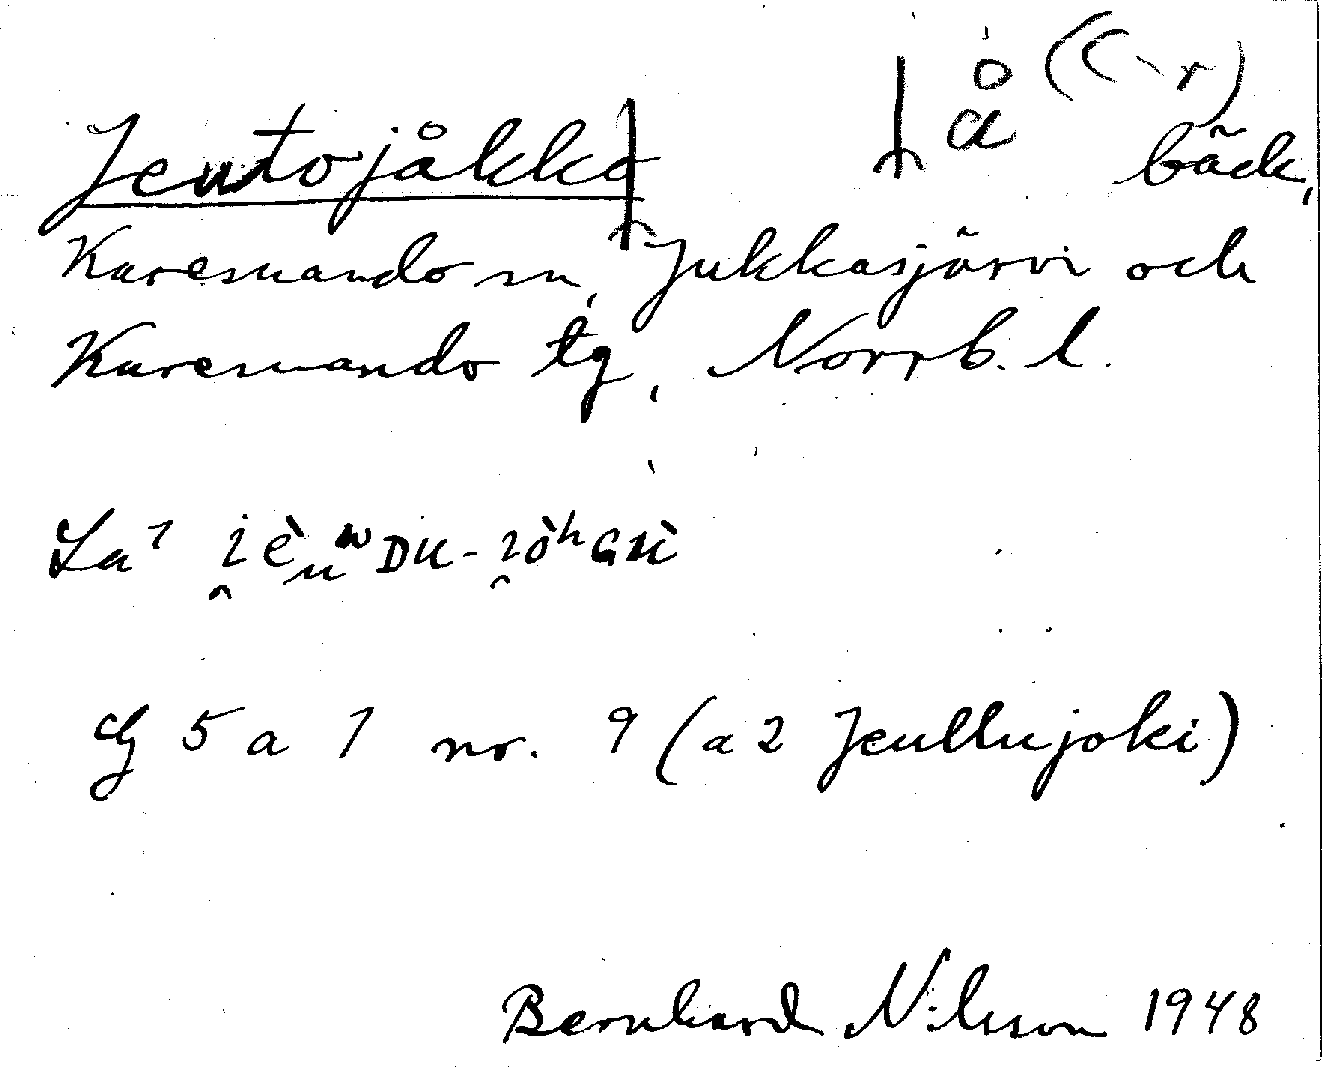 å (C-r)
Jentojåkka a bäck,
Karesuando sn, Jukkasjärvi och
Karesuando tg, Norrb. l.
La 1
G 5 a 1 nr. 9 (a 2 Jeullujoki)
Bernhard Nilsson 1948